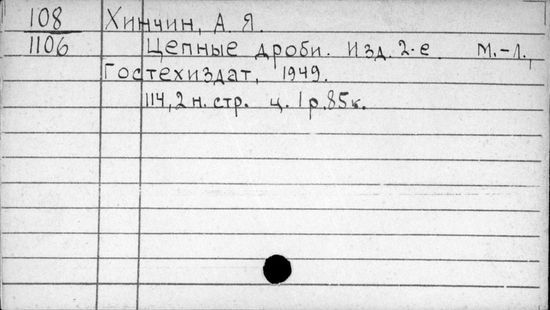 108 Хинчин, А. Я.
1106 Цепные дроби. Изд. 2-е. М.-Л.,
Гостехиздат, 1949.
114, 2 н. стр. ц. 1 р. 85 к.